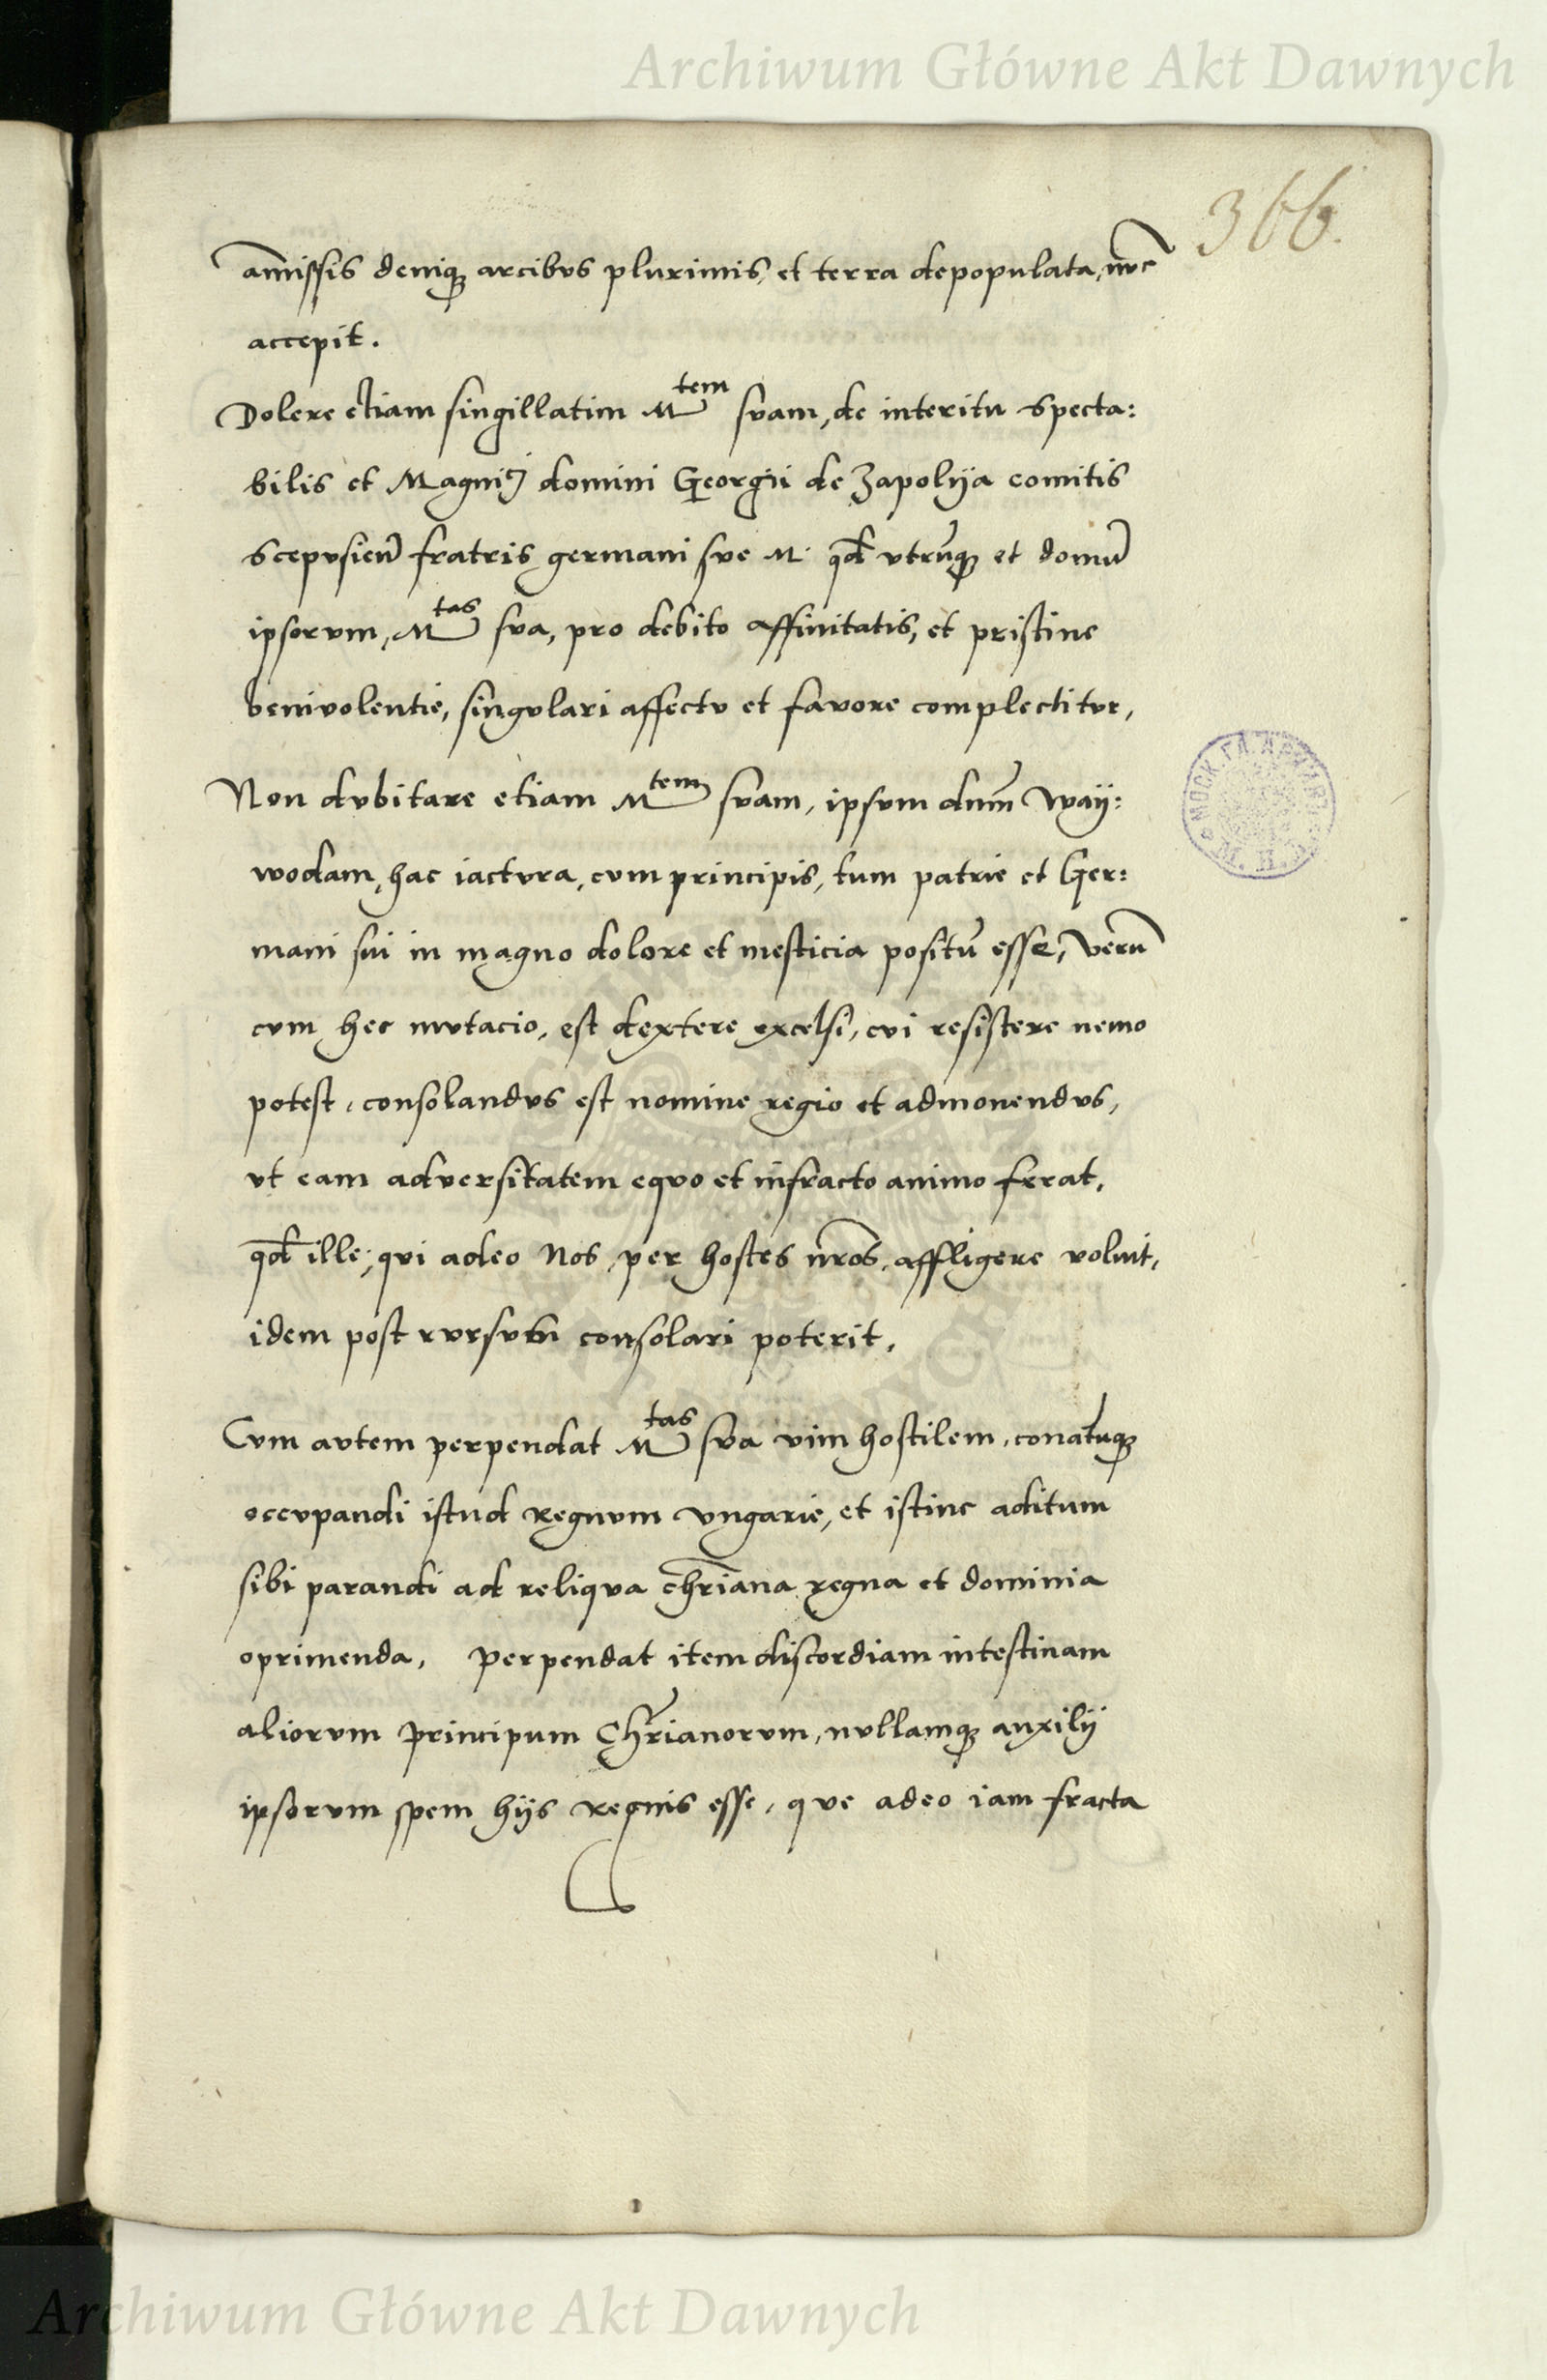 Archiwum Główne Akt Dawnych
366.
amissis deniq̃ arcibus plurimis, et terra depopulata, nũc
accepit.
Dolere etiam singillatim Mtem suam, de interitu specta:
bilis et Magnici domini Georgii de Zapolya comitis
scepusien̄ fratris germani sue M. qđ utrũq̃ et domũ
ipsorum, Mtas sua, pro debito affinitatis, et pristine
benivolentie, singulari affectu et favore complectitur,
Non dubitare etiam Mtem suam, ipsum dnm̄ Way:
wodam, hac iactura, cum principis, tum patrie et Ger:
mani sui in magno dolore et mesticia positũ esse, verũ
cum hec mutacio, est dextere excelsi, cui resistere nemo
potest, consolandus est nomine regio et admonendus,
ut eam adversitatem equo et infracto animo ferat,
qđ ille, qui adeo Nos, per hostes nr̄os, affligere voluit,
idem post rursum consolari poterit,
Cum autem perpendat Mtas sua vim hostilem, conatũq̃
occupandi istud Regnum Ungarie, et istinc aditum
sibi parandi ad reliqua chr̄iana regna et dominia
oprimenda, perpendat item discordiam intestinam
aliorum principum Chr̄ianorum, nullamq̃ auxilij
ipsorum spem hijs regnis esse, que adeo iam fracta
Archiwum Główne Akt Dawnych